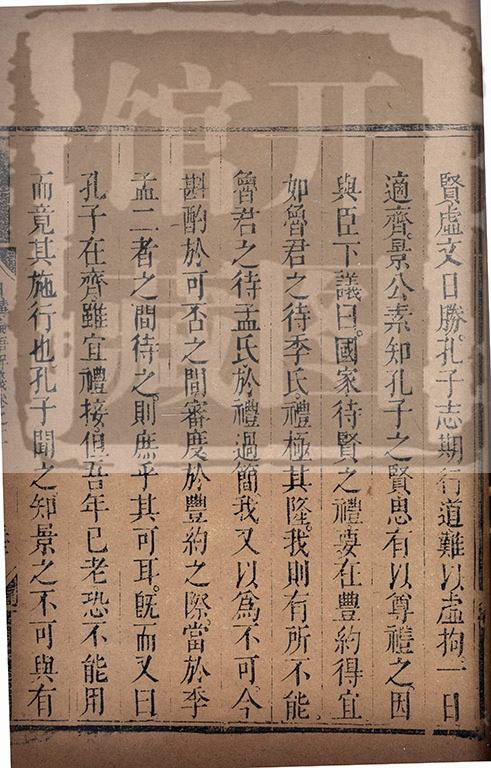 賢虛文日勝孔子志期行道難以虛拘一日
適齊景公素知孔子之賢思有以尊禮之因
與臣下議曰國家待賢之禮要在豐約得宜
如魯君之待季氏禮極其隆我則有所不能
魯君之待孟氏於禮過簡我又以為不可今
斟酌於可否之間審度於豐約之際當於季
孟二者之間待之則庶乎其可耳旣而又曰
孔子在齊雖宜禮接但吾年已老恐不能用
而竟其施行也孔子聞之知景之不可與有